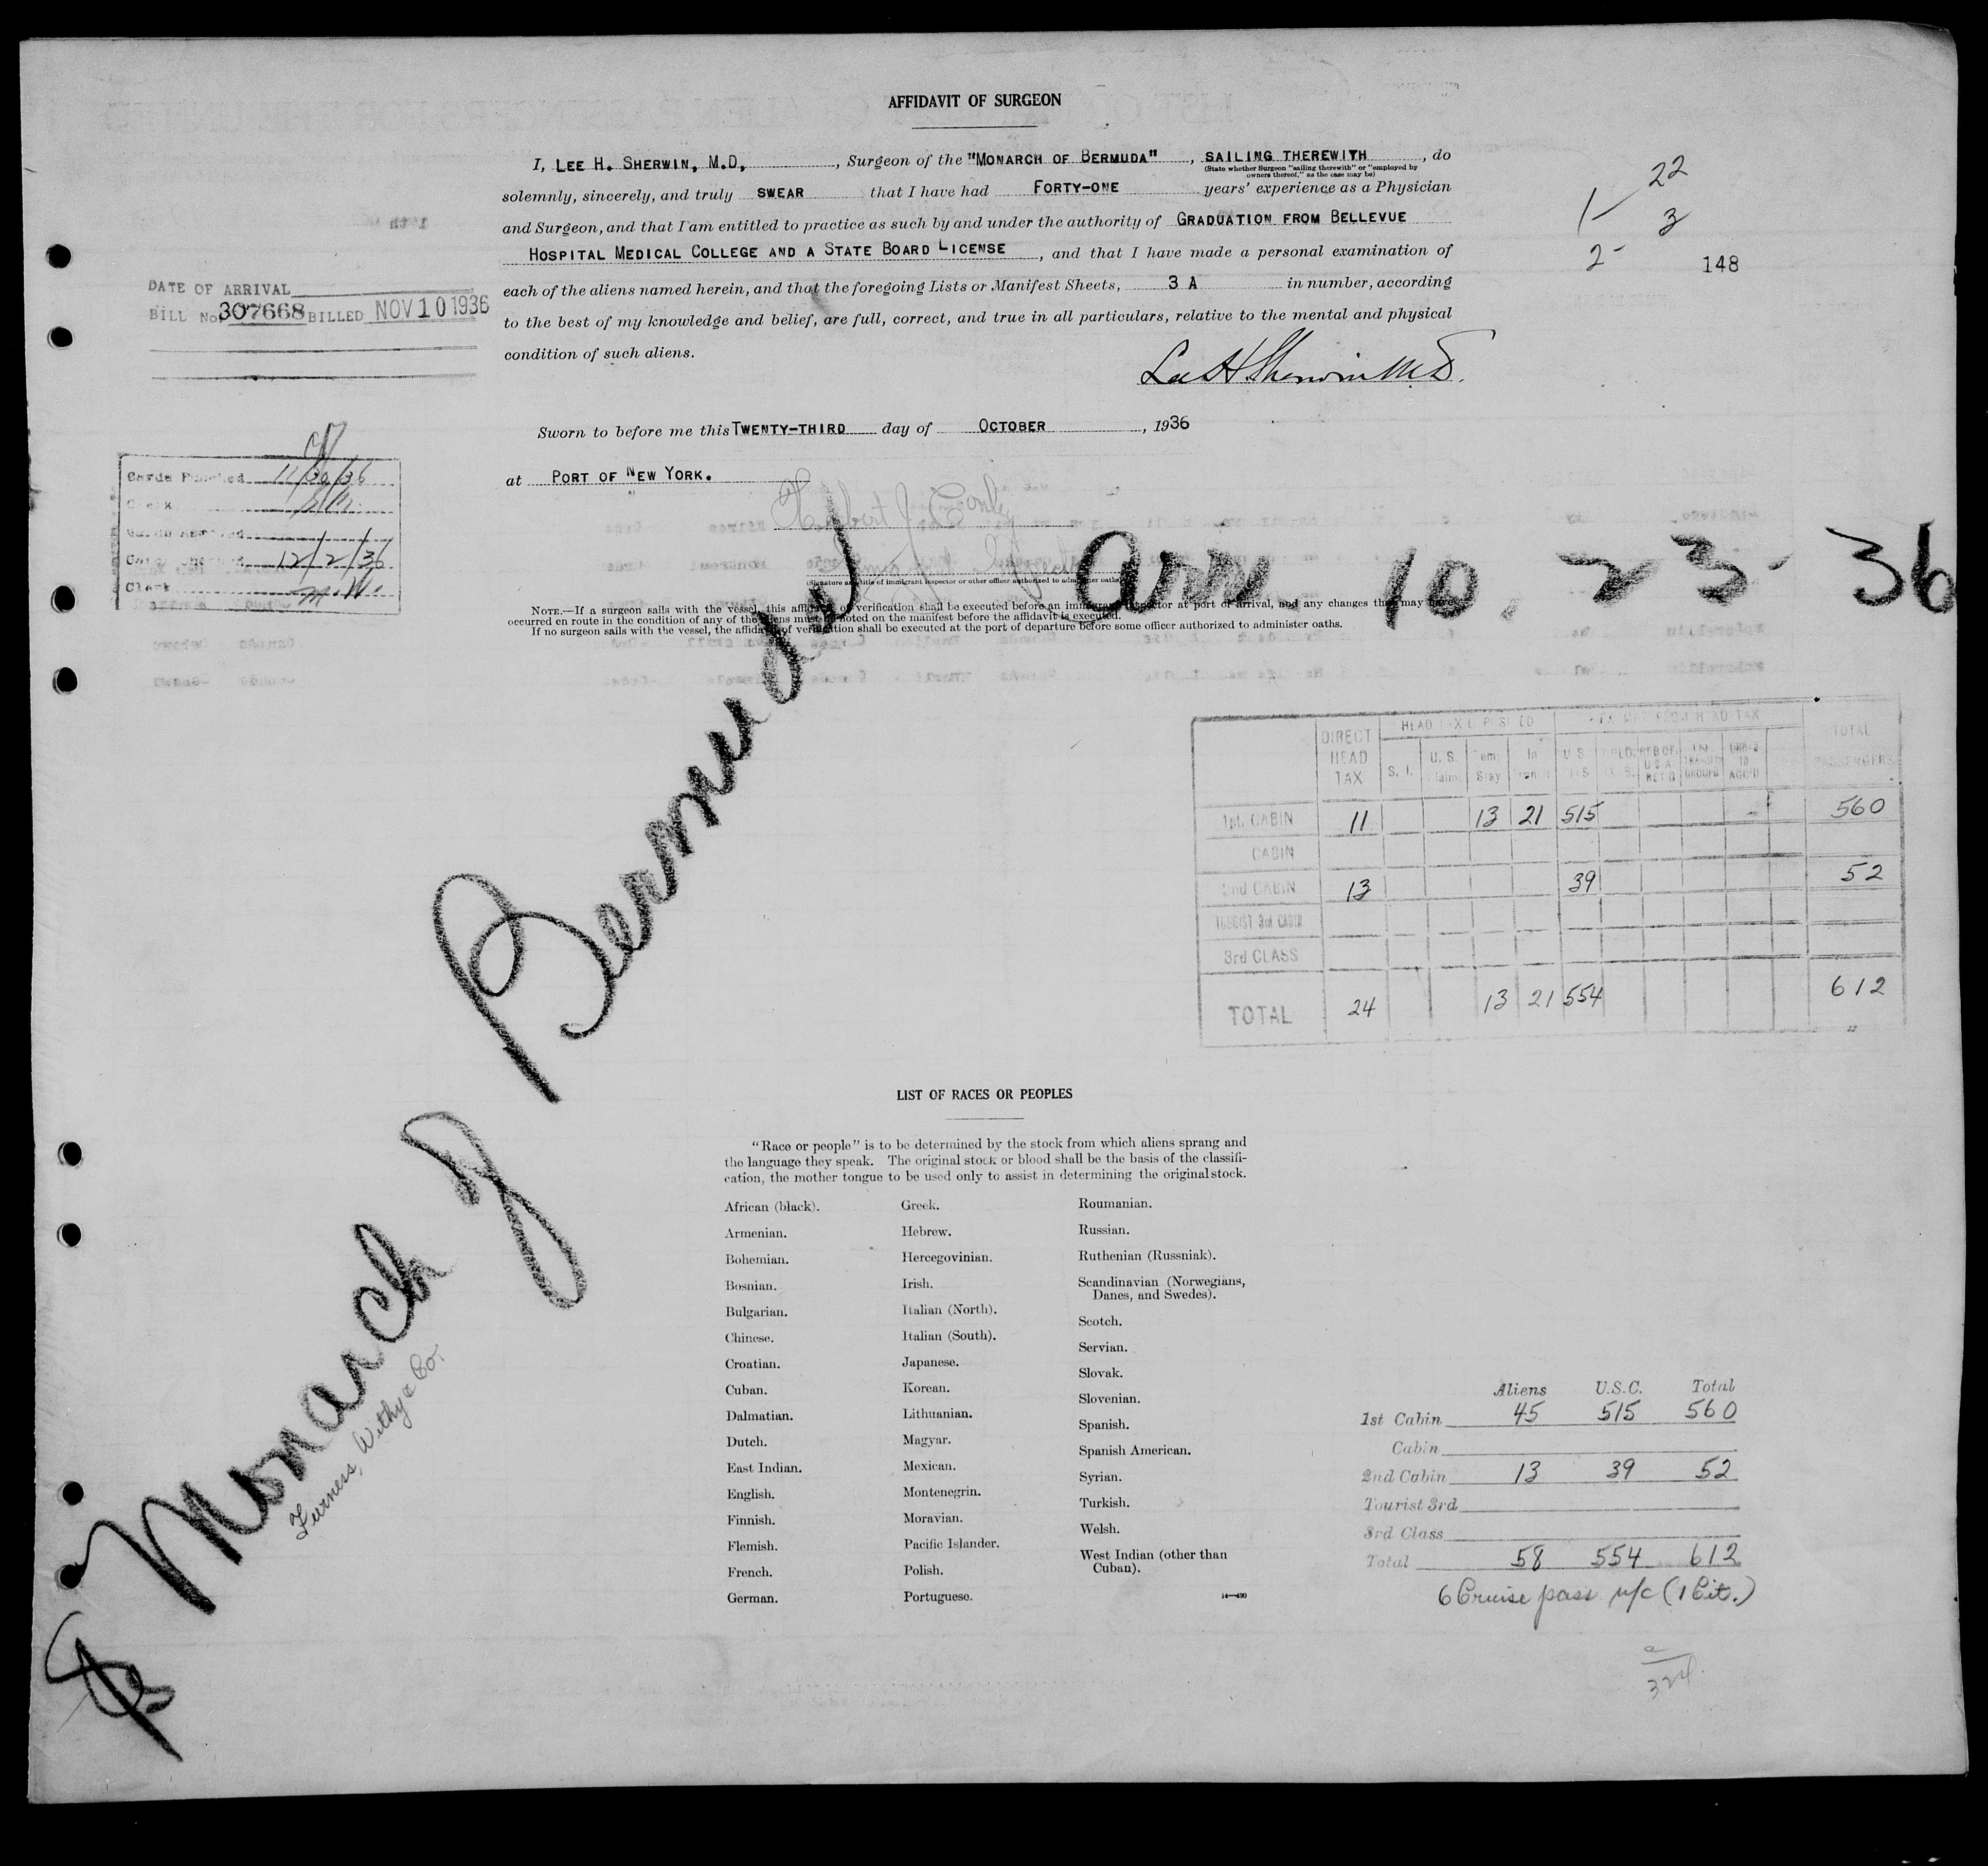 AFFIDAVIT OF SURGEON
I, LEE H. SHERWIN, M.D., Surgeon of the "MONARCH OF BERMUDA", SAILING THEREWITH, do
(State whether Surgeon "sailing therewith" or "employed by
owners thereof," as the case may be)
solemnly, sincerely, and truly SWEAR that I have had FORTY-ONE years' experience as a Physician
and Surgeon, and that I am entitled to practice as such by and under the authority of GRADUATION FROM BELLEVUE
HOSPITAL MEDICAL COLLEGE AND A STATE BOARD LICENSE, and that I have made a personal examination of
each of the aliens named herein, and that the foregoing Lists or Manifest Sheets, 3 A in number, according
to the best of my knowledge and belief, are full, correct, and true in all particulars, relative to the mental and physical
condition of such aliens.
Lee H Sherwin M.D.
22
1- 3
2-
148
DATE OF ARRIVAL
BILL No. 307668 BILLED NOV 10 1936
Sworn to before me this TWENTY-THIRD day of OCTOBER, 1936
at PORT OF NEW YORK.
Cards Punched 11/30/36
Clerk
12/2/36
Clerk
(Signature and title of immigrant inspector or other officer authorized to administer oaths)
Arr 10-23-36
NOTE.—If a surgeon sails with the vessel, this affidavit of verification shall be executed before an immigrant inspector at port of arrival, and any changes that may have
occurred en route in the condition of any of the aliens must be noted on the manifest before the affidavit is executed.
If no surgeon sails with the vessel, the affidavit of verification shall be executed at the port of departure before some officer authorized to administer oaths.
Monarch of Bermuda
Furness, Withy & Co.
DIRECT HEAD TAX S. I. U. S. Claims Tem Stay In Transit U S TOTAL PASSENGERS
1st. CABIN 11 13 21 515 560
CABIN
2nd CABIN 13 39 52
TOURIST 3rd CABIN
3rd CLASS
TOTAL 24 13 21 554 612
LIST OF RACES OR PEOPLES
"Race or people" is to be determined by the stock from which aliens sprang and
the language they speak. The original stock or blood shall be the basis of the classifi-
cation, the mother tongue to be used only to assist in determining the original stock.
African (black).
Armenian.
Bohemian.
Bosnian.
Bulgarian.
Chinese.
Croatian.
Cuban.
Dalmatian.
Dutch.
East Indian.
English.
Finnish.
Flemish.
French.
German.
Greek.
Hebrew.
Hercegovinian.
Irish.
Italian (North).
Italian (South).
Japanese.
Korean.
Lithuanian.
Magyar.
Mexican.
Montenegrin.
Moravian.
Pacific Islander.
Polish.
Portuguese.
Roumanian.
Russian.
Ruthenian (Russniak).
Scandinavian (Norwegians,
Danes, and Swedes).
Scotch.
Servian.
Slovak.
Slovenian.
Spanish.
Spanish American.
Syrian.
Turkish.
Welsh.
West Indian (other than
Cuban).
14—430
Aliens U.S.C. Total
1st Cabin 45 515 560
Cabin
2nd Cabin 13 39 52
Tourist 3rd
3rd Class
Total 58 554 612
6 Cruise pass n/c (1 Cit.)
324